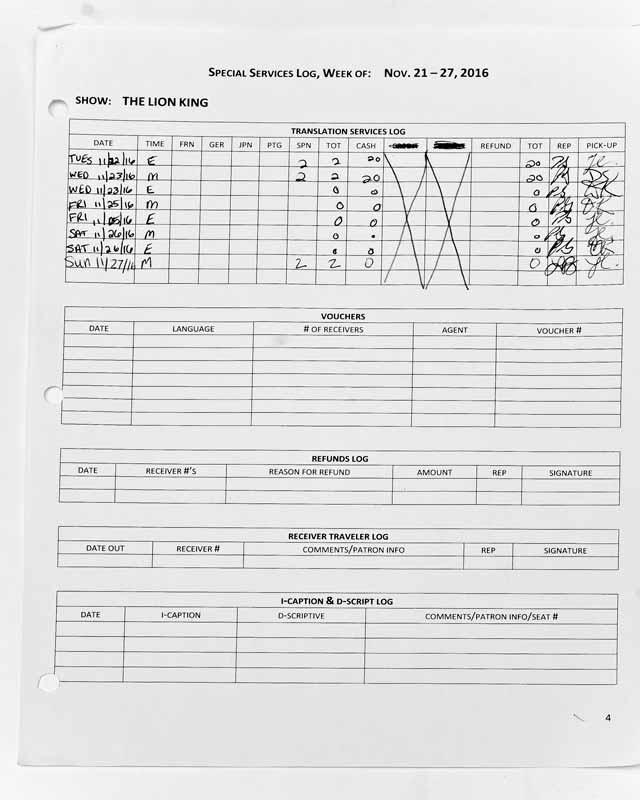 SPECIAL SERVICES LOG, WEEK OF: NOV. 21 – 27, 2016
SHOW: THE LION KING
TRANSLATION SERVICES LOG
DATE TIME FRN GER JPN PTG SPN TOT CASH REFUND TOT REP PICK-UP
TUES 11/22/16 E 2 2 20 20
WED 11/23/16 M 2 2 20 20
WED 11/23/16 E 0 0 0
FRI 11/25/16 M 0 0 0
FRI 11/05/16 E 0 0 0
SAT 11/26/16 M 0 0
SAT 11/26/16 E 0 0 0
Sun 11/27/16 M 2 2 0 0
VOUCHERS
DATE LANGUAGE # OF RECEIVERS AGENT VOUCHER #
REFUNDS LOG
DATE RECEIVER #'S REASON FOR REFUND AMOUNT REP SIGNATURE
RECEIVER TRAVELER LOG
DATE OUT RECEIVER # COMMENTS/PATRON INFO REP SIGNATURE
I-CAPTION & D-SCRIPT LOG
DATE I-CAPTION D-SCRIPTIVE COMMENTS/PATRON INFO/SEAT #
4